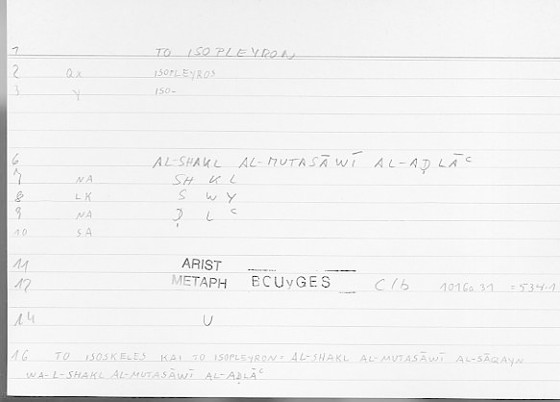 1 TO ISOPLEYRON
2 Qx ISOPLEYROS
3 Y ISO-
6 AL-SHAKL AL-MUTASĀWĪ AL-AḌLĀᶜ
7 NA SH K L
8 LK S W Y
9 NA Ḍ L ᶜ
10 SA
11 ARIST
12 METAPH BCUyGES C/b 1016a31 = 534.1
14 U
16 TO ISOSKELES KAI TO ISOPLEYRON = AL-SHAKL AL-MUTASĀWĪ AL-SĀQAYN
WA-L-SHAKL AL-MUTASĀWĪ AL-AḌLĀᶜ